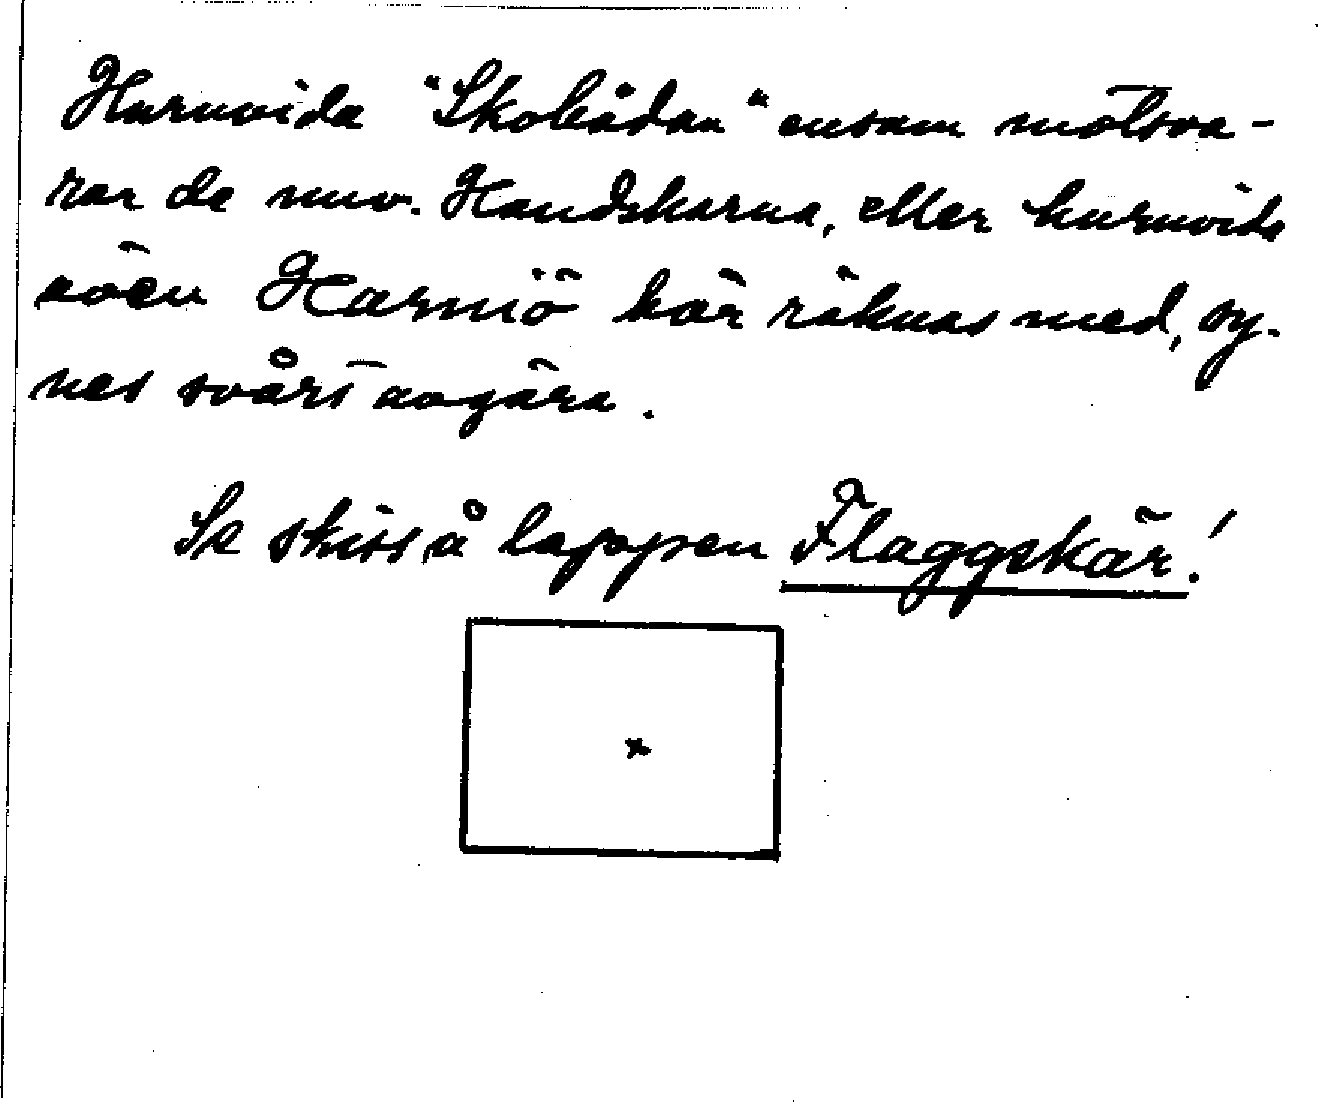 Huruvida "Skobådan" ensam motsva-
rar de nuv. Handskarna, eller huruvida
även Harmiö bör räknas med, sy-
nes svårt avgöra.
Se skiss å lappen Flaggskär!
x